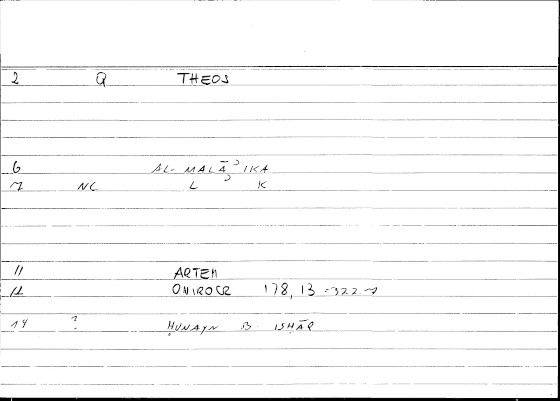 2 Q THEOS
6 AL-MALĀʾIKA
7 NC L ʾ K
11 ARTEM
12 ONIROCR 178,13 = 322,7
14 ? ḤUNAYN B ISḤĀQ